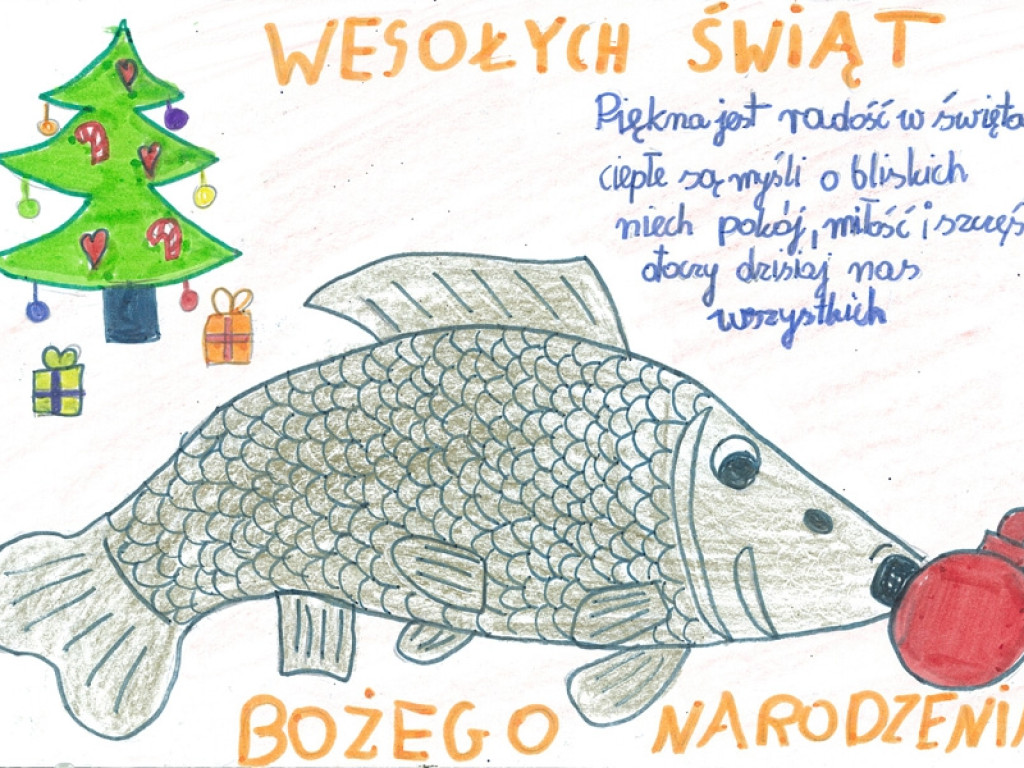 WESOŁYCH ŚWIĄT
Piękna jest radość w święta
ciepłe są myśli o bliskich
niech pokój, miłość i szczęś
otoczy dzisiaj nas
wszystkich
BOŻEGO NARODZENIA